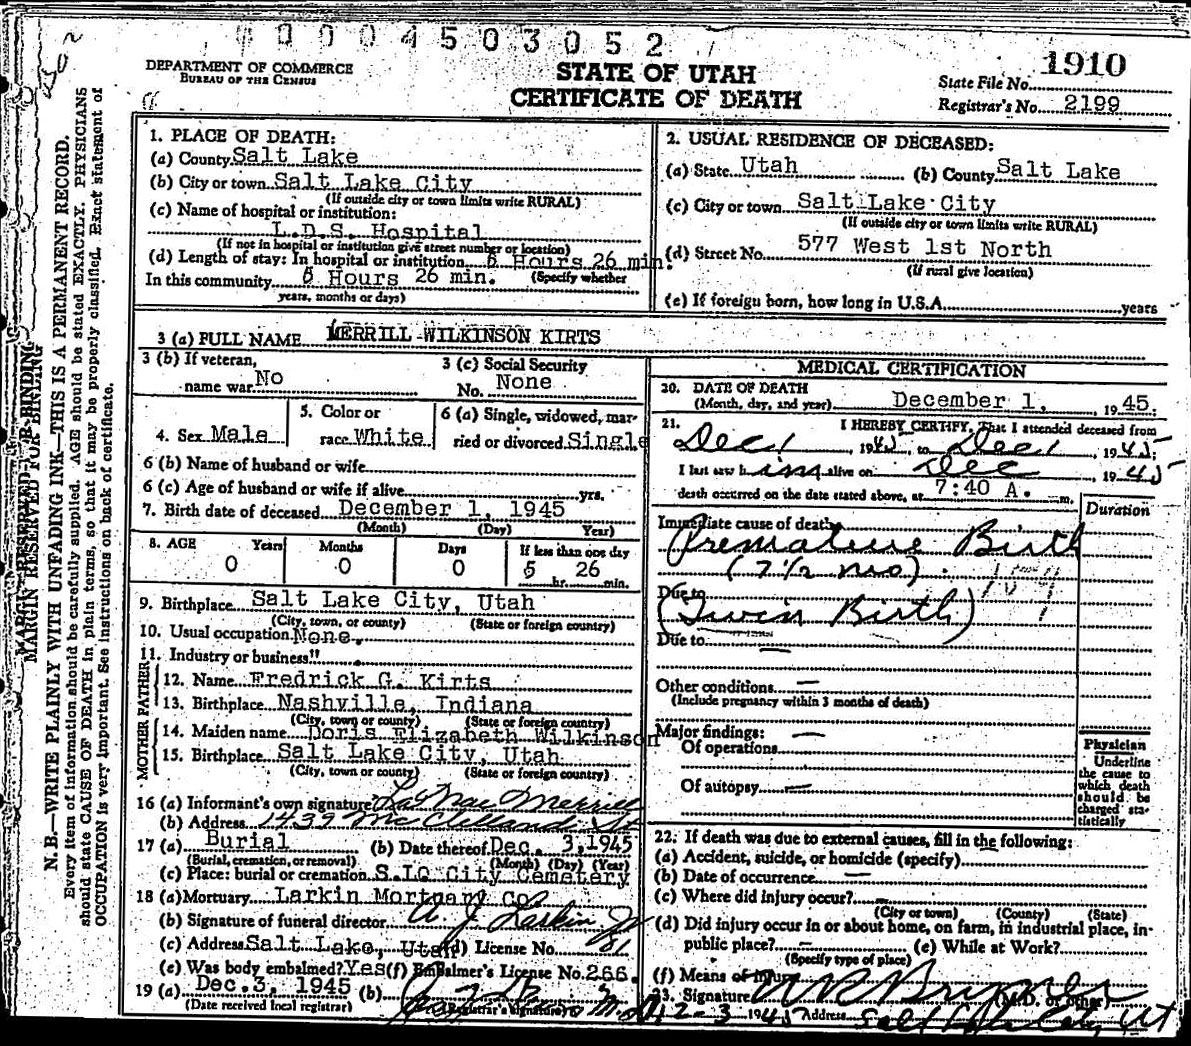 0004503052
DEPARTMENT OF COMMERCE
BUREAU OF THE CENSUS
STATE OF UTAH
CERTIFICATE OF DEATH
1910
State File No.
Registrar's No. 2199
MARGIN RESERVED FOR BINDING
N. B.—WRITE PLAINLY WITH UNFADING INK—THIS IS A PERMANENT RECORD.
Every item of information should be carefully supplied. AGE should be stated EXACTLY. PHYSICIANS
should state CAUSE OF DEATH in plain terms, so that it may be properly classified. Exact statement of
OCCUPATION is very important. See instructions on back of certificate.
1. PLACE OF DEATH:
(a) County Salt Lake
(b) City or town Salt Lake City
(If outside city or town limits write RURAL)
(c) Name of hospital or institution:
L.D.S. Hospital
(If not in hospital or institution give street number or location)
(d) Length of stay: In hospital or institution 5 Hours 26 min.
(Specify whether
In this community 5 Hours 26 min.
years, months or days)
2. USUAL RESIDENCE OF DECEASED:
(a) State Utah (b) County Salt Lake
(c) City or town Salt Lake City
(If outside city or town limits write RURAL)
(d) Street No. 577 West 1st North
(If rural give location)
(e) If foreign born, how long in U.S.A. years
3 (a) FULL NAME MERRILL WILKINSON KIRTS
3 (b) If veteran,
name war No
3 (c) Social Security
No. None
4. Sex Male
5. Color or
race White
6 (a) Single, widowed, mar-
ried or divorced Single
6 (b) Name of husband or wife
6 (c) Age of husband or wife if alive yrs.
7. Birth date of deceased December 1, 1945
(Month) (Day) (Year)
8. AGE Years Months Days If less than one day
0 0 0 5 26
hr. min.
9. Birthplace Salt Lake City, Utah
(City, town, or county) (State or foreign country)
10. Usual occupation None.
11. Industry or business " .
FATHER
12. Name Fredrick G. Kirts
13. Birthplace Nashville, Indiana
(City, town or county) (State or foreign country)
MOTHER
14. Maiden name Doris Elizabeth Wilkinson
15. Birthplace Salt Lake City, Utah
(City, town or county) (State or foreign country)
16 (a) Informant's own signature La Nae Merrill
(b) Address 1439 McClelland St
17 (a) Burial (b) Date thereof Dec. 3, 1945
(Burial, cremation, or removal) (Month) (Day) (Year)
(c) Place: burial or cremation S.L. City Cemetery
18 (a) Mortuary Larkin Mortuary Co
(b) Signature of funeral director A J Larkin Jr
(c) Address Salt Lake, Utah (d) License No. 81
(e) Was body embalmed? Yes (f) Embalmer's License No. 266.
19 (a) Dec. 3, 1945 (b)
(Date received local registrar) (Registrar's signature)
MEDICAL CERTIFICATION
20. DATE OF DEATH
(Month, day, and year) December 1, 1945.
21. I HEREBY CERTIFY, That I attended deceased from
Dec 1, 1945, to Dec 1, 1945;
I last saw him alive on Dec, 1945
death occurred on the date stated above, at 7:40 A. m.
Duration
Immediate cause of death
Premature Birth
(7 1/2 mo)
Due to
(Twin Birth)
Due to —
Other conditions —
(Include pregnancy within 3 months of death)
Major findings: —
Of operations
Of autopsy —
Physician
Underline
the cause to
which death
should be
charged sta-
tistically
22. If death was due to external causes, fill in the following:
(a) Accident, suicide, or homicide (specify)
(b) Date of occurrence —
(c) Where did injury occur? —
(City or town) (County) (State)
(d) Did injury occur in or about home, on farm, in industrial place, in-
public place? — (e) While at Work?
(Specify type of place)
(f) Means of injury
23. Signature (M.D. or other)
12-3 1945 Address Salt Lake City, Ut